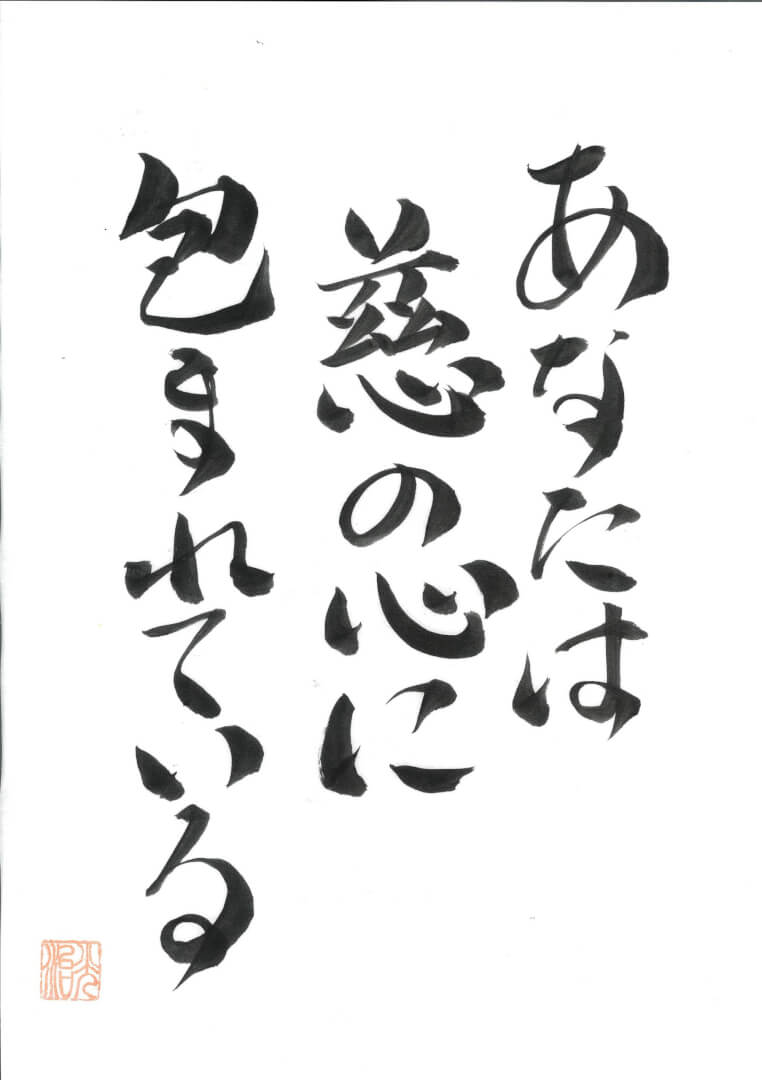 あなたは
慈の心に
包まれている